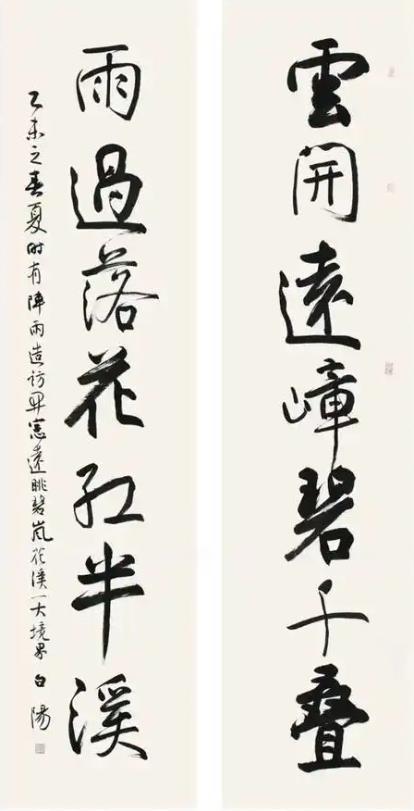 雲開遠嶂碧千疊
雨過落花紅半溪
乙未之春夏時有陣雨造訪畢窓遠眺碧嵐花溪一大境界 白陽